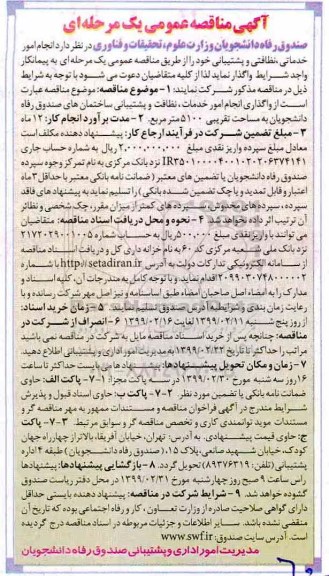 آگهی مناقصه عمومی یک مرحله ای
صندوق رفاه دانشجویان وزارت علوم، تحقیقات و فناوری در نظر دارد انجام امور
خدماتی، نظافتی و پشتیبانی خود را از طریق مناقصه عمومی یک مرحله ای به پیمانکار
واجد شرایط واگذار نماید لذا از کلیه متقاضیان دعوت می شود با توجه به شرایط
ذیل در مناقصه مذکور شرکت نمایند: ۱- موضوع مناقصه: موضوع مناقصه عبارت
است از واگذاری انجام امور خدمات، نظافت و پشتیبانی ساختمان های صندوق رفاه
دانشجویان به مساحت تقریبی ۵۱۰۰ متر مربع. ۲- مدت برآورد انجام کار: ۱۲ ماه
۳- مبلغ تضمین شرکت در فرآیند ارجاع کار: پیشنهاد دهنده مکلف است
معادل مبلغ سپرده واریز نقدی مبلغ ۲,۰۰۰,۰۰۰,۰۰۰ ریال به شماره حساب جاری
نزد بانک مرکزی به نام تمرکز وجوه سپرده
صندوق رفاه دانشجویان یا تضمین های معتبر (ضمانت نامه بانکی معتبر با حداقل ۳ ماه
اعتبار و قابل تمدید و یا چک تضمین شده بانکی) را تسلیم نماید به پیشنهاد های فاقد
سپرده، سپرده های مخدوش، سپرده های کمتر از میزان مقرر، چک شخصی و نظائر
آن ترتیب اثر داده نخواهد شد. ۴- نحوه و محل دریافت اسناد مناقصه: متقاضیان
می توانند با واریز نقدی مبلغ ۵۰۰,۰۰۰ ریال به حساب شماره ۲۱۷۲۰۲۹۰۰۱۰۰۵
نزد بانک ملی شعبه مرکزی کد ۶۰ به نام خزانه داری کل و دریافت اسناد مناقصه
از سامانه الکترونیکی تدارکات دولت به آدرس http://setadiran.ir با شماره
۲۰۹۹۰۳۰۷۴۸۰۰۰۰۰۲ اقدام نمایند و با توجه کامل به مندرجات آن، کلیه اسناد و
مدارک را به امضاء اصل صاحبان امضاء طبق اساسنامه و نیز اصل مهر شرکت رسانده و با
رعایت زمان بندی و شرایط به آدرس صندوق تسلیم نمایند. ۵- زمان خرید اسناد:
از روز پنج شنبه ۱۳۹۹/۰۲/۱۱ لغایت ۱۳۹۹/۰۲/۱۶ ۶- انصراف از شرکت در
مناقصه: چنانچه پس از خرید اسناد مناقصه مایل به شرکت در مناقصه نمی باشید
مراتب را حداکثر تا تاریخ ۱۳۹۹/۰۲/۲۲ به مدیریت امور اداری و پشتیبانی اطلاع دهید.
۷- زمان و مکان تحویل پیشنهادها: پیشنهادها می بایست حداکثر تا ساعت
۱۶ روز سه شنبه مورخ ۱۳۹۹/۰۲/۳۰ در سه پاکت مجزا: ۷-۱- پاکت الف: حاوی
ضمانت نامه بانکی یا تضمین مورد نظر ۷-۲- پاکت ب: حاوی اسناد قبول و پذیرش
شرایط مندرج در آگهی فراخوان مناقصه و مستندات ممهور به مهر مناقصه گر و
مستندات موید توانمندی کاری و تخصص مناقصه گر و سوابق مرتبط. ۷-۳- پاکت
ج: حاوی قیمت پیشنهادی. به آدرس: تهران، خیابان آفریقا، بالاتر از چهارراه جهان
کودک، خیابان شهید صانعی، پلاک ۱۵، (صندوق رفاه دانشجویان) طبقه ۴ اداره
پشتیبانی (تلفن: ۸۹۳۷۶۳۱۹) تحویل گردد. ۸- بازگشایی پیشنهادها: پیشنهادها
راس ساعت ۹ صبح روز چهارشنبه مورخ ۱۳۹۹/۰۲/۳۱ در محل دفتر ریاست صندوق
گشوده خواهد شد. ۹- شرایط شرکت در مناقصه: پیشنهاد دهنده بایستی حداقل
دارای گواهی صلاحیت صادره از وزارت تعاون، کار و رفاه اجتماعی بوده که تاریخ آن
منقضی نشده باشد. سایر اطلاعات و جزئیات مربوطه در اسناد مناقصه درج گردیده
است. آدرس سایت صندوق: www.swf.ir
مدیریت امور اداری و پشتیبانی صندوق رفاه دانشجویان